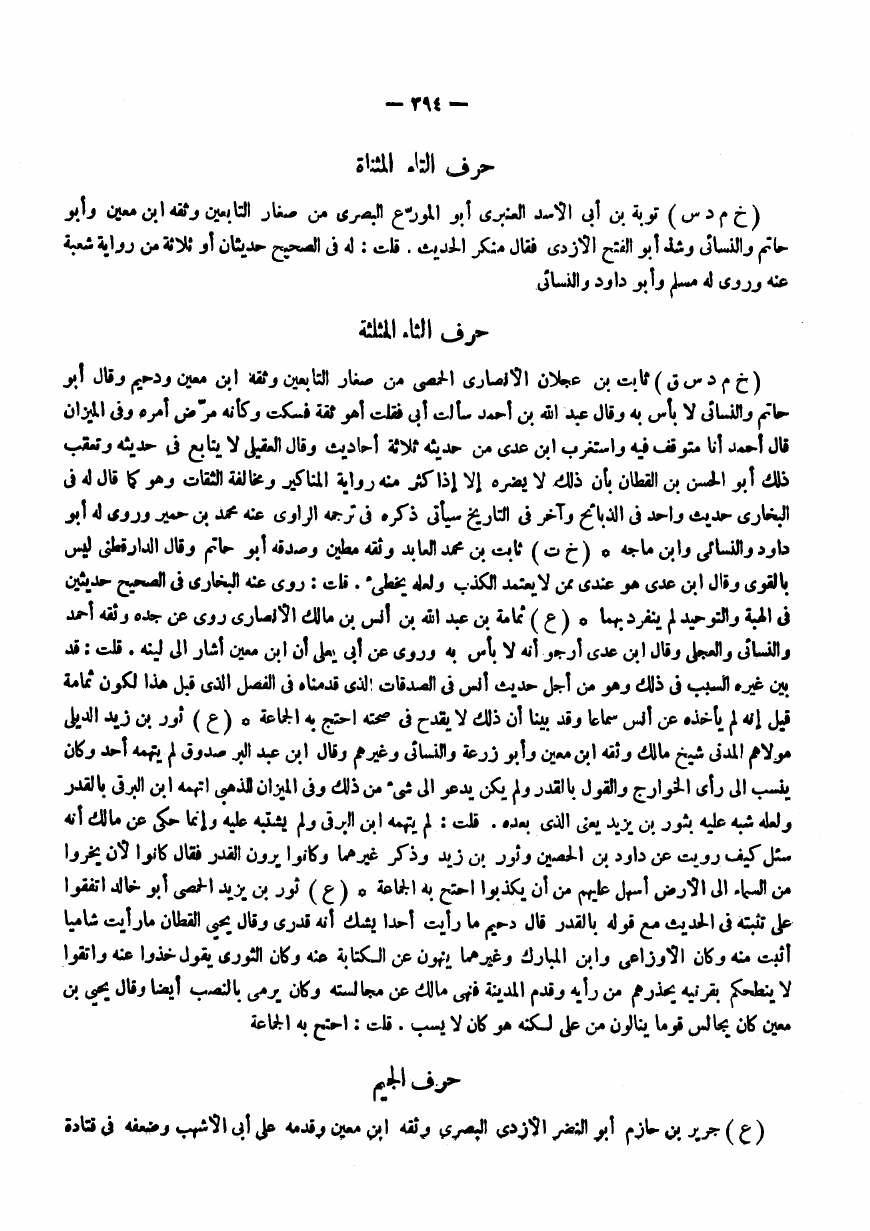 — ٣٩٤ —
حرف التاء المثناة
( خ م د س ) توبة بن أبى الأسد العنبرى أبو المورّع البصرى من صغار التابعين وثقه ابن معين وأبو
حاتم والنسائى وشذ أبو الفتح الأزدى فقال منكر الحديث . قلت : له فى الصحيح حديثان أو ثلاثة من رواية شعبة
عنه وروى له مسلم وأبو داود والنسائى
حرف الثاء المثلثة
( خ م د س ق ) ثابت بن عجلان الأنصارى الحمصى من صغار التابعين وثقه ابن معين ودحيم وقال أبو
حاتم والنسائى لا بأس به وقال عبد الله بن أحمد سألت أبى فقلت أهو ثقة فسكت وكأنه مرّض أمره وفى الميزان
قال أحمد أنا متوقف فيه واستغرب ابن عدى من حديثه ثلاثة أحاديث وقال العقيلى لا يتابع فى حديثه وتعقب
ذلك أبو الحسن بن القطان بأن ذلك لا يضره إلا إذا كثر منه رواية المناكير ومخالفة الثقات وهو كما قال له فى
البخارى حديث واحد فى الذبائح وآخر فى التاريخ سيأتى ذكره فى ترجمه الراوى عنه محمد بن حمير وروى له أبو
داود والنسائى وابن ماجه * ( خ ت ) ثابت بن محمد العابد وثقه مطين وصدقه أبو حاتم وقال الدارقطنى ليس
بالقوى وقال ابن عدى هو عندى ممن لا يعتمد الكذب ولعله يخطىء . قلت : روى عنه البخارى فى الصحيح حديثين
فى الهبة والتوحيد لم ينفرد بهما * ( ع ) ثمامة بن عبد الله بن أنس بن مالك الأنصارى روى عن جده وثقه أحمد
والنسائى والعجلى وقال ابن عدى أرجو أنه لا بأس به وروى عن أبى يعلى أن ابن معين أشار الى لينه . قلت : قد
بين غيره السبب فى ذلك وهو من أجل حديث أنس فى الصدقات الذى قدمناه فى الفصل الذى قبل هذا لكون ثمامة
قيل إنه لم يأخذه عن أنس سماعا وقد بينا أن ذلك لا يقدح فى صحته احتج به الجماعة * ( ع ) ثور بن زيد الديلى
مولاهم المدنى شيخ مالك وثقه ابن معين وأبو زرعة والنسائى وغيرهم وقال ابن عبد البر صدوق لم يتهمه أحد وكان
ينسب الى رأى الخوارج والقول بالقدر ولم يكن يدعو الى شىء من ذلك وفى الميزان للذهبى اتهمه ابن البرقى بالقدر
ولعله شبه عليه بثور بن يزيد يعنى الذى بعده . قلت : لم يتهمه ابن البرقى ولم يشتبه عليه وإنما حكى عن مالك أنه
سئل كيف رويت عن داود بن الحصين وثور بن زيد وذكر غيرهما وكانوا يرون القدر فقال كانوا لأن يخروا
من السماء الى الأرض أسهل عليهم من أن يكذبوا احتج به الجماعة * ( ع ) ثور بن يزيد الحمصى أبو خالد اتفقوا
على تثبته فى الحديث مع قوله بالقدر قال دحيم ما رأيت أحدا يشك أنه قدرى وقال يحيى القطان مارأيت شاميا
أثبت منه وكان الأوزاعى وابن المبارك وغيرهما ينهون عن الكتابة عنه وكان الثورى يقول خذوا عنه واتقوا
لا ينطحكم بقرنيه يحذرهم من رأيه وقدم المدينة فنهى مالك عن مجالسته وكان يرمى بالنصب أيضا وقال يحيى بن
معين كان يجالس قوما ينالون من على لكنه هو كان لا يسب . قلت : احتج به الجماعة
حرف الجيم
( ع ) جرير بن حازم أبو النضر الأزدى البصرى وثقه ابن معين وقدمه على أبى الأشهب وضعفه فى قتادة